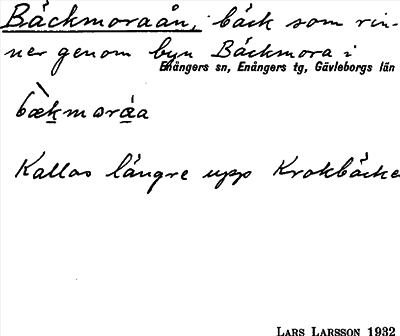 Bäckmoraån, bäck som rin-
ner genom byn Bäckmora i
Enångers sn, Enångers tg, Gävleborgs län
bæ̀kmoráa
Kallas längre upp Krokbäcke
LARS LARSSON 1932